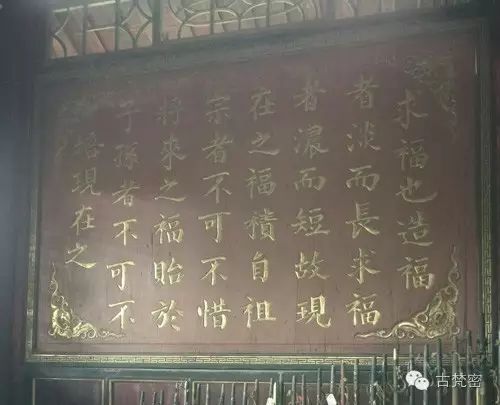 求福也造福
者淡而長求福
者濃而短故現
在之福積自祖
宗者不可不惜
將來之福貽於
子孫者不可不
培現在之
古梵密